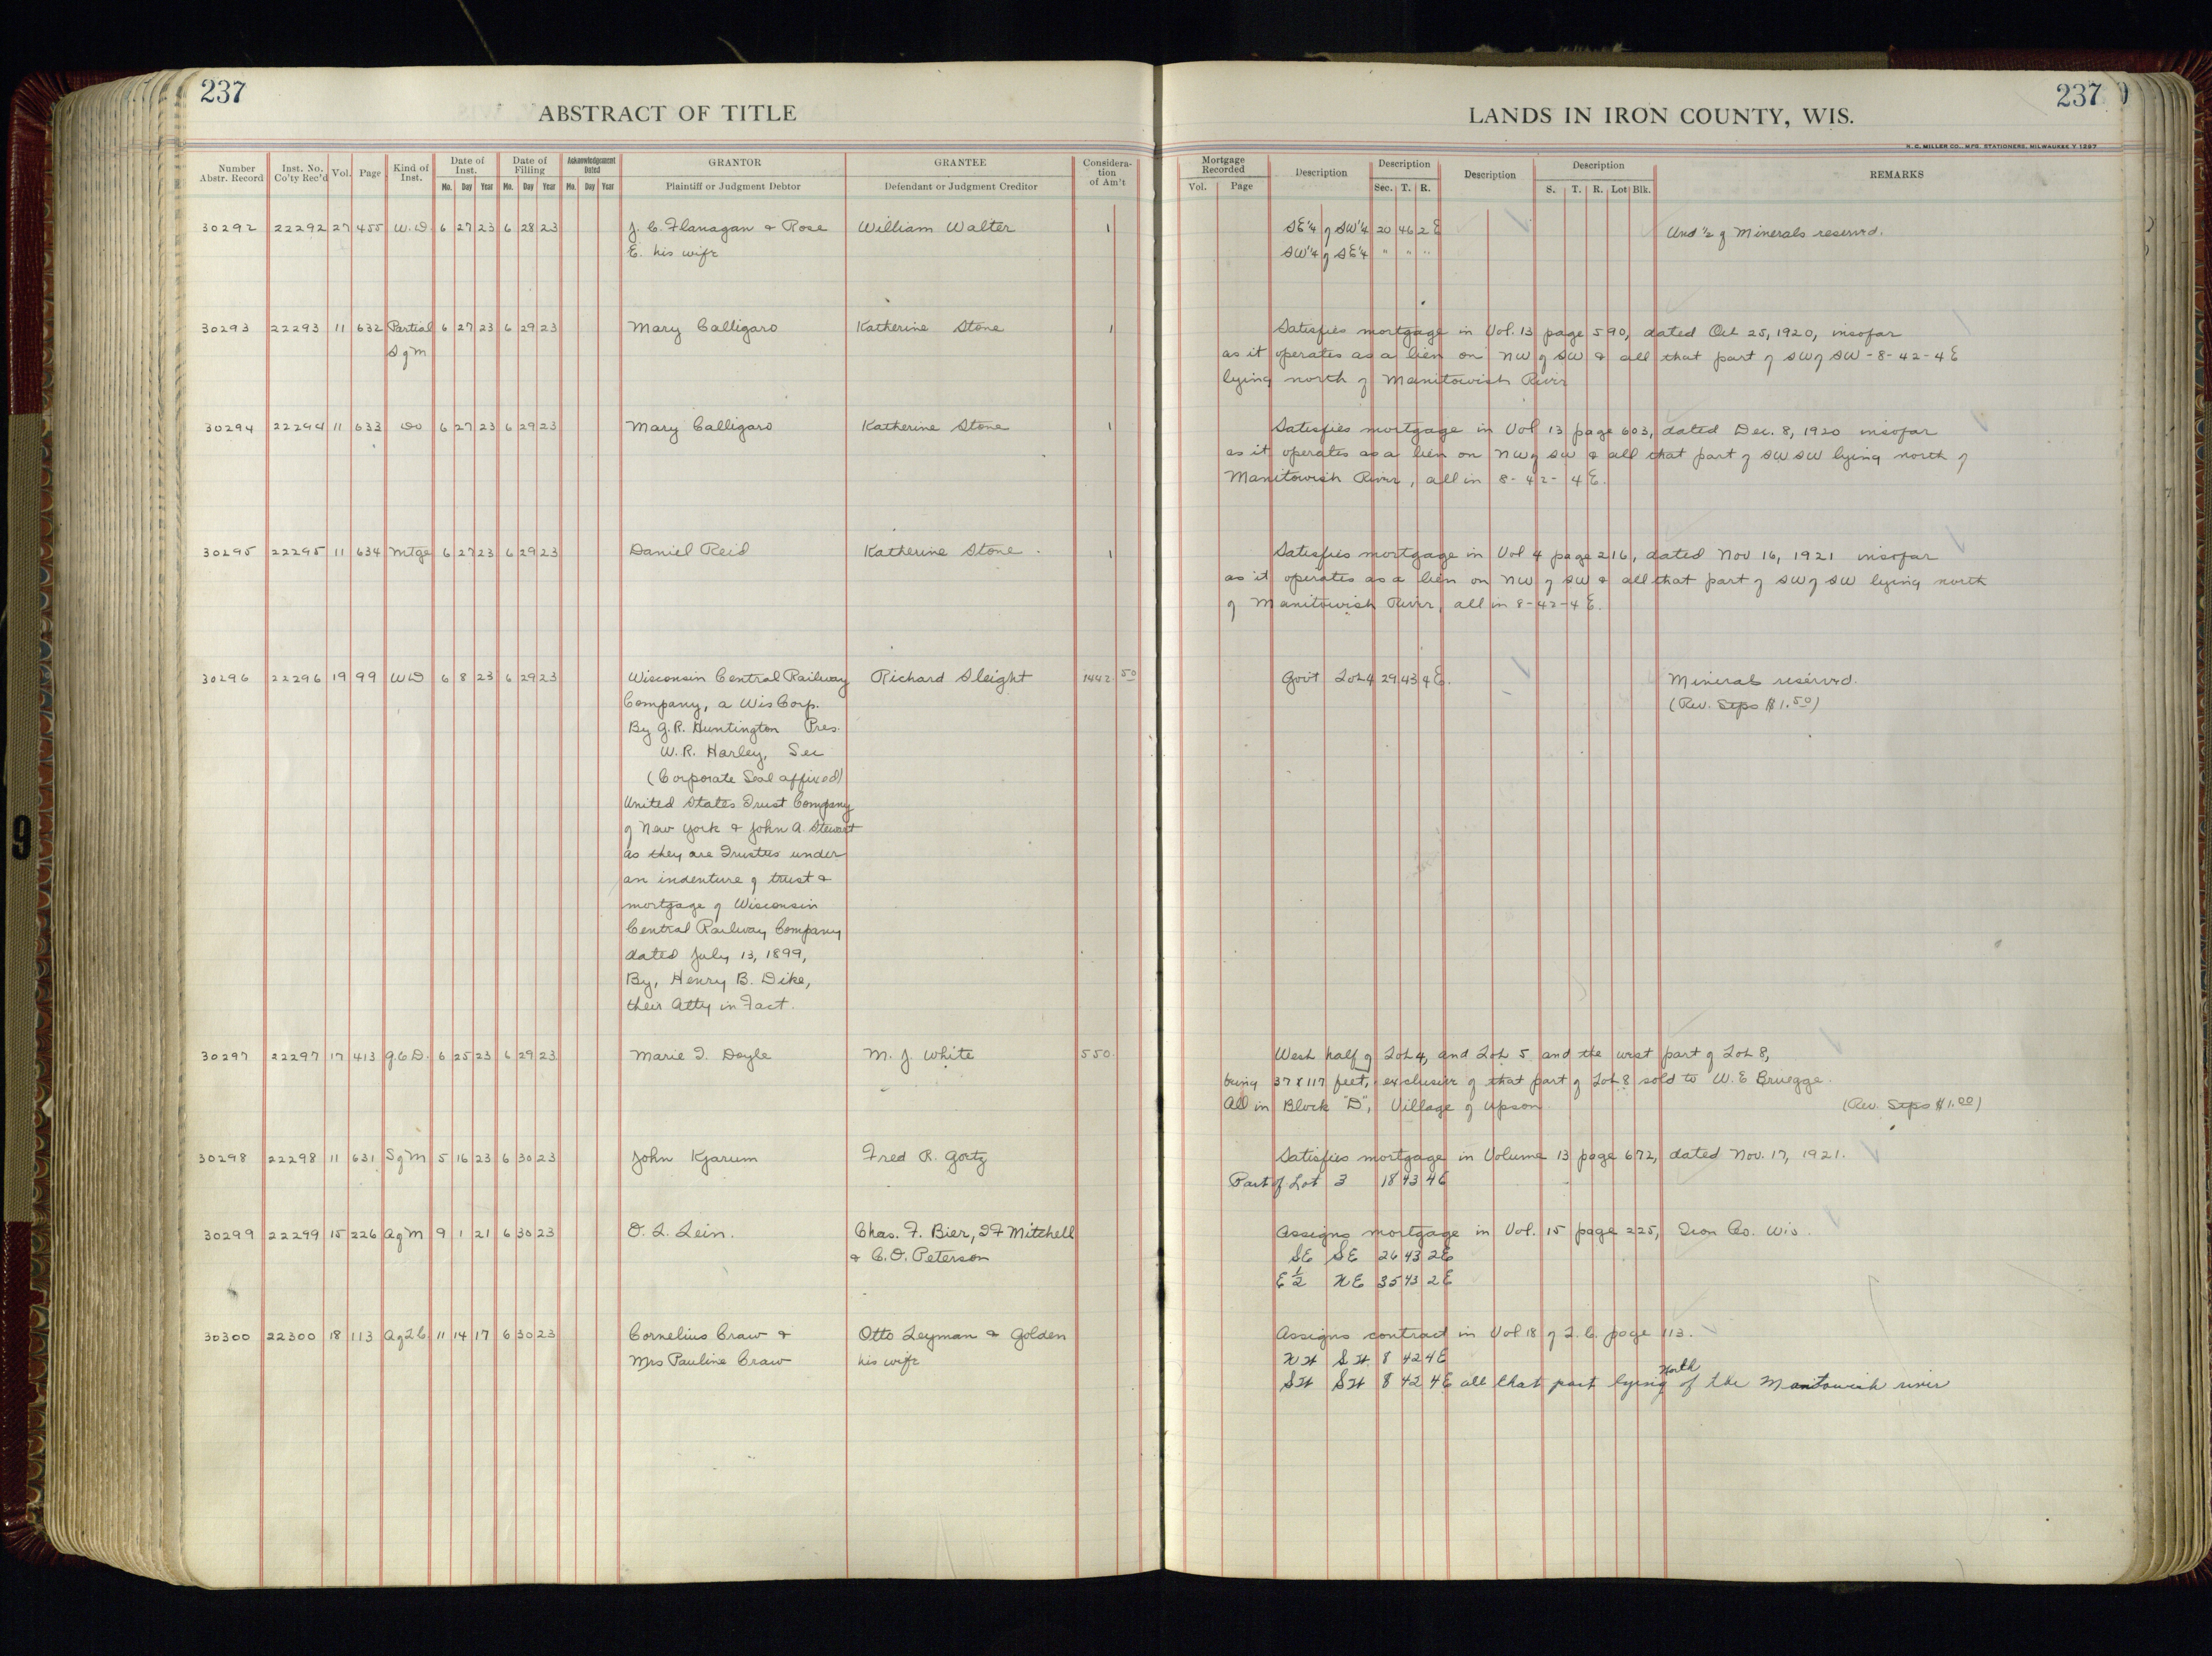 237
237
ABSTRACT OF TITLE
LANDS IN IRON COUNTY, WIS.
H. C. MILLER CO., MFG. STATIONERS, MILWAUKEE
Number Abstr. Record Inst. No. Co'ty Rec'd Vol. Page Kind of Inst. Date of Inst. Mo. Day Year Date of Filling Mo. Day Year Acknowledgement Dated Mo. Day Year GRANTOR Plaintiff or Judgment Debtor GRANTEE Defendant or Judgment Creditor Considera-tion of Am't Mortgage Recorded Vol. Page Description Description Sec. T. R. Description Description S. T. R. Lot Blk. REMARKS
30292 22292 27 455 W.D. 6 27 23 6 28 23 J. C. Flanagan & Rose William Walter 1 SE¼ of SW¼ 20 46 2 E Und ½ of Minerals reserved.
E. his wife SW¼ of SE¼ " " "
30293 22293 11 632 Partial 6 27 23 6 29 23 Mary Calligaro Katherine Stone 1 Satisfies mortgage in Vol. 13 page 590, dated Oct 25, 1920, insofar
S of M as it operates as a lien on NW of SW & all that part of SW of SW - 8 - 42 - 4 E
lying north of Manitowish River
30294 22294 11 633 Do 6 27 23 6 29 23 Mary Calligaro Katherine Stone 1 Satisfies mortgage in Vol 13 page 603, dated Dec. 8, 1920 insofar
as it operates as a lien on NW of SW & all that part of SW SW lying north of
Manitowish River, all in 8 - 42 - 4 E.
30295 22295 11 634 Mtge 6 27 23 6 29 23 Daniel Reid Katherine Stone. 1 Satisfies mortgage in Vol 4 page 216, dated Nov 16, 1921 insofar
as it operates as a lien on NW of SW & all that part of SW of SW lying north
of Manitowish River, all in 8-42-4 E.
30296 22296 19 99 WD 6 8 23 6 29 23 Wisconsin Central Railway Richard Sleight 1442.50 Gov't Lot 4 29 43 4 E. Minerals reserved.
Company, a Wis Corp. (Rev. Stps $1.50)
By G.R. Huntington Pres.
W. R. Harley, Sec
(Corporate Seal affixed)
United States Trust Company
of New York & John A. Stewart
as they are Trustees under
an indenture of trust &
mortgage of Wisconsin
Central Railway Company
dated July 13, 1899,
By, Henry B. Dike,
their Atty in Fact.
30297 22297 17 413 Q.C.D. 6 25 23 6 29 23 Marie T. Doyle M. J. White 550. West half of Lot 4, and Lot 5 and the west part of Lot 8,
being 37 x 117 feet, exclusive of that part of Lot 8 sold to W. E. Bruegge.
All in Block "D", Village of Upson (Rev. Stps $1.00)
30298 22298 11 631 S of M 5 16 23 6 30 23 John Kjarum Fred R. Gortz Satisfies mortgage in Volume 13 page 672, dated Nov. 17, 1921.
Part of Lot 3 18 43 4E
30299 22299 15 226 A of M 9 1 21 6 30 23 O. L. Lein. Chas. F. Bier, I F Mitchell Assigns mortgage in Vol. 15 page 225, Iron Co. Wis.
& C. O. Peterson SE SE 26 43 2E
E ½ NE 35 43 2E
30300 22300 18 113 A of L C 11 14 17 6 30 23 Cornelius Craw & Otto Leyman & Golden Assigns contract in Vol 18 of L. C. page 113.
Mrs Pauline Craw his wife NW SW. 8 42 4E
SW SW 8 42 4E all that part lying North of the Manitowish river
9